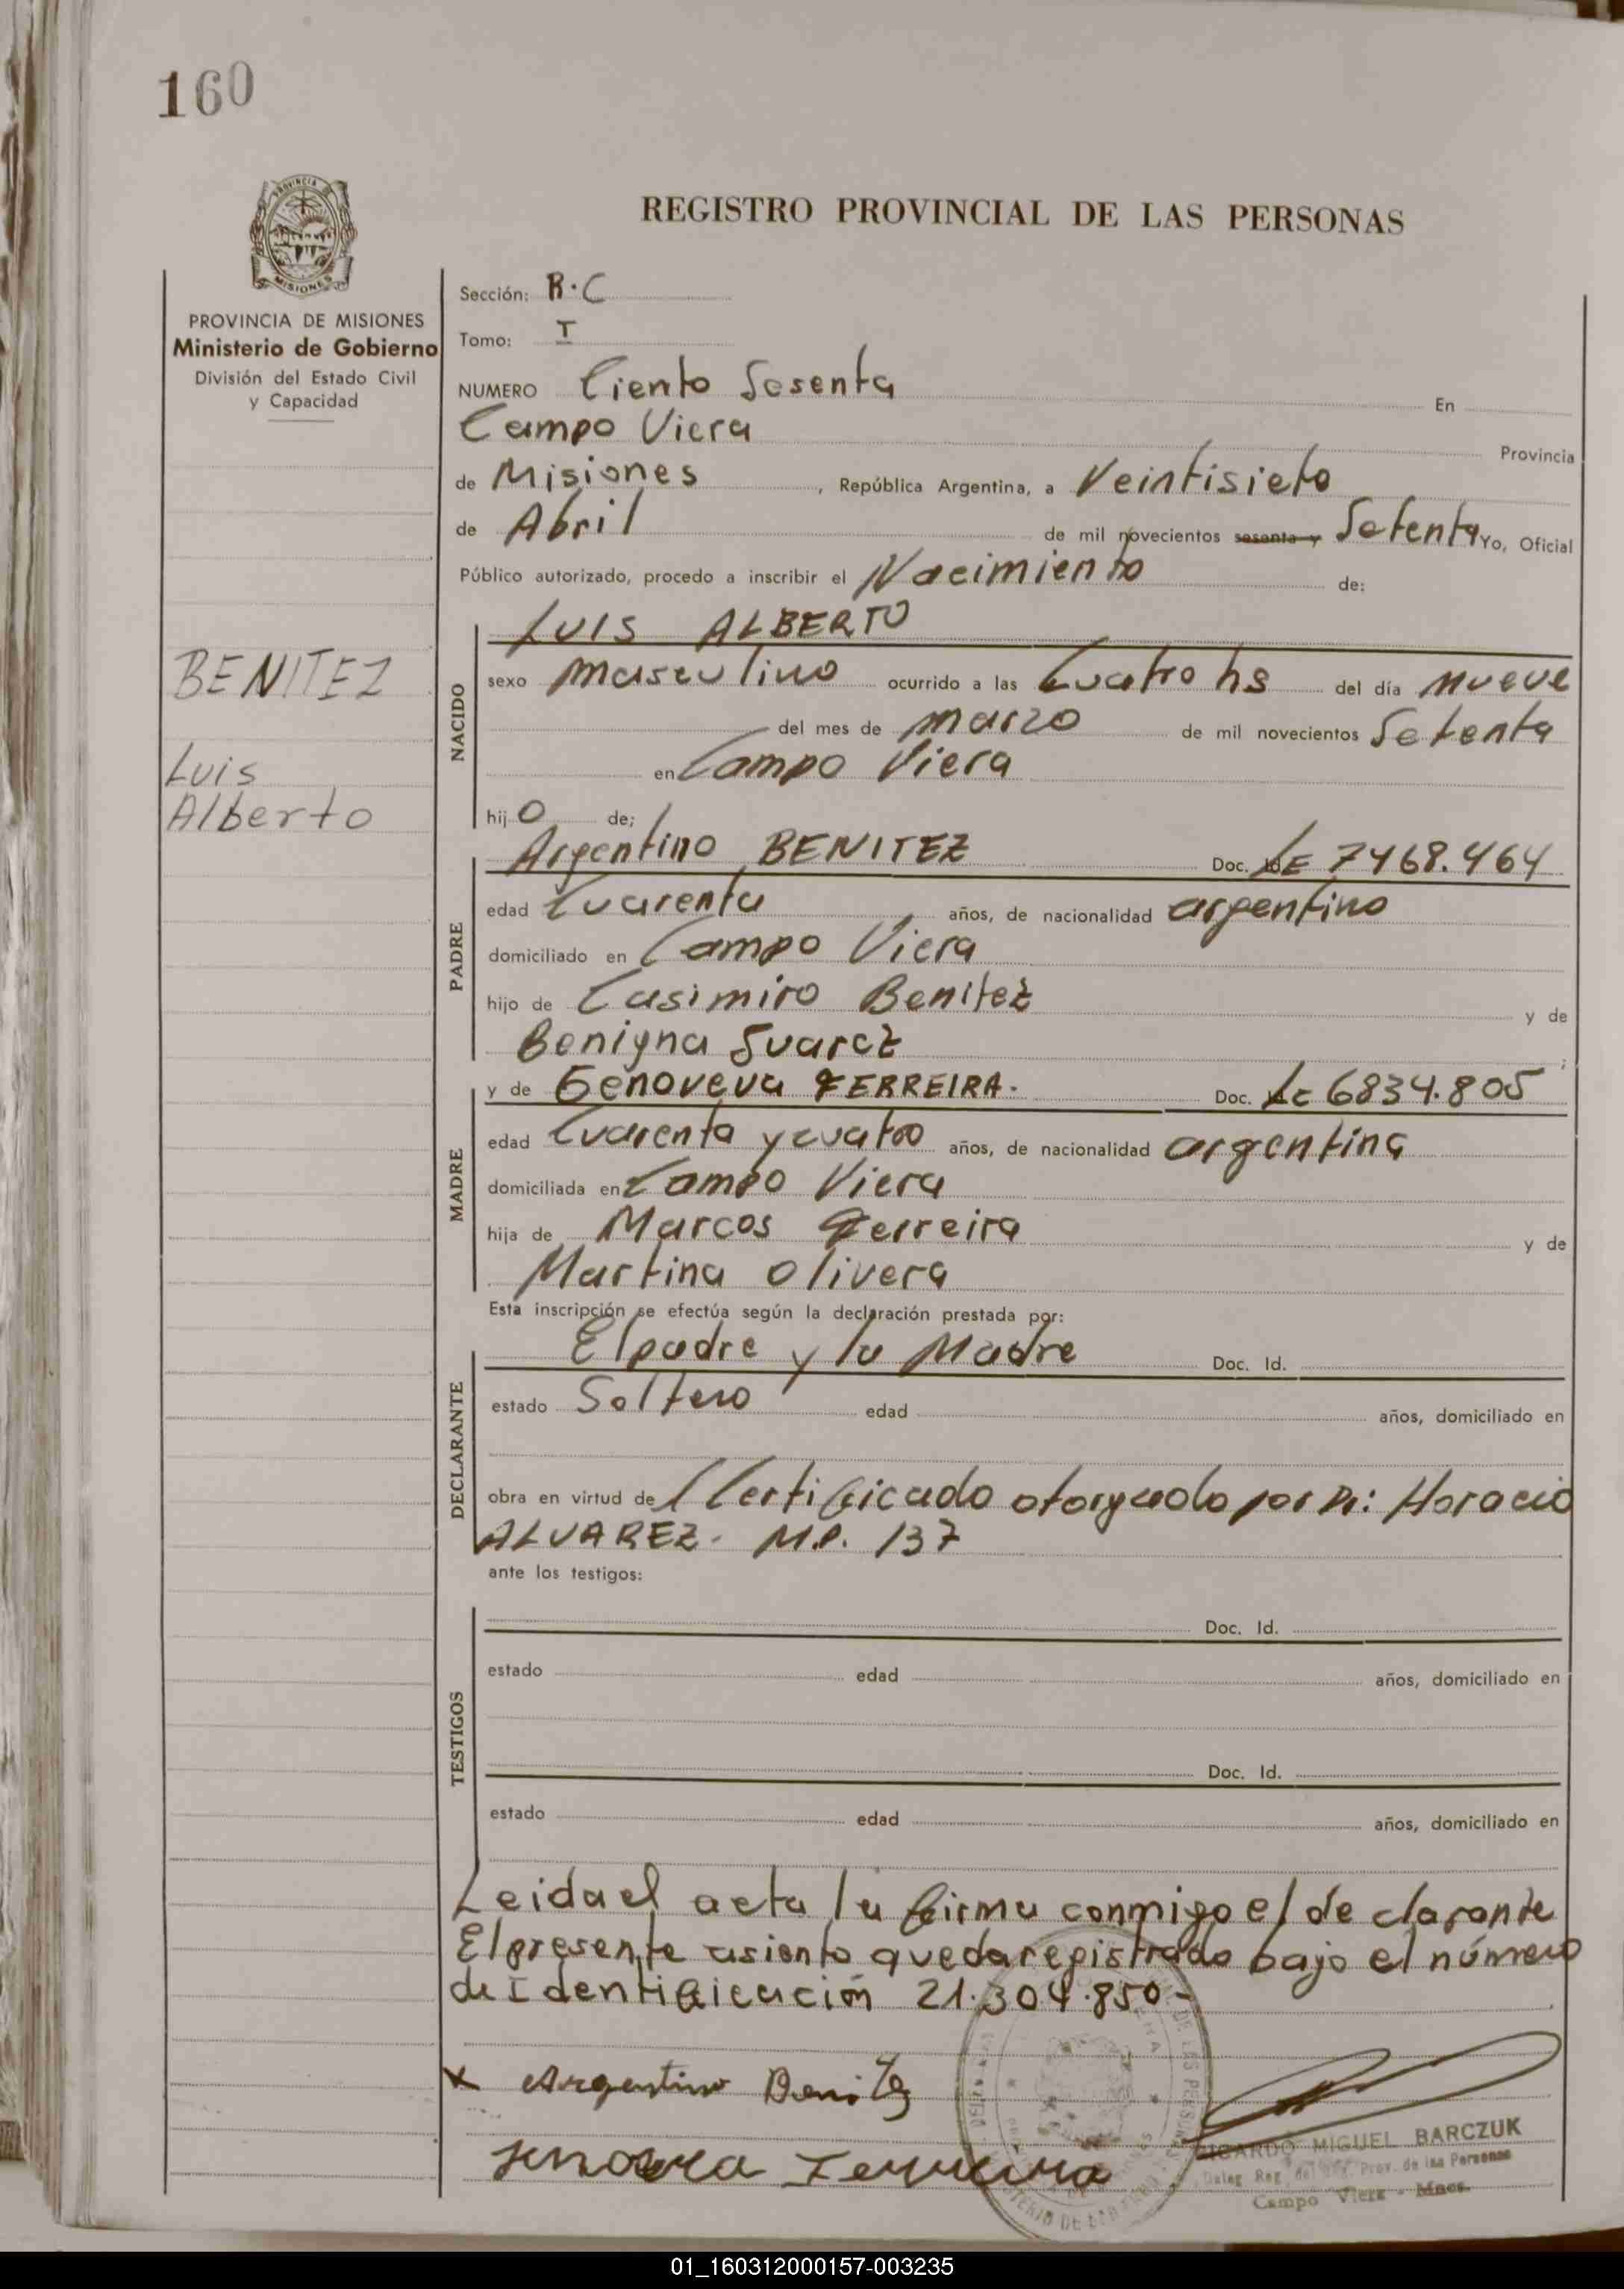 160
PROVINCIA DE
MISIONES
REGISTRO PROVINCIAL DE LAS PERSONAS
PROVINCIA DE MISIONES
Ministerio de Gobierno
División del Estado Civil
y Capacidad
BENITEZ
Luis
Alberto
Sección: R.C
Tomo: I
NUMERO Ciento Sesenta En
Campo Viera Provincia
de Misiones, República Argentina, a Veintisiete
de Abril de mil novecientos sesenta y Setenta Yo, Oficial
Público autorizado, procedo a inscribir el Nacimiento de:
NACIDO
LUIS ALBERTO
sexo masculino ocurrido a las Cuatro hs del día nueve
del mes de marzo de mil novecientos Setenta
en Campo Viera
hijo de;
PADRE
Argentino BENITEZ Doc. Id. LE 7468.464
edad Cuarenta años, de nacionalidad argentino
domiciliado en Campo Viera
hijo de Casimiro Benitez y de
Benigna Suarez ;
MADRE
y de Genoveva FERREIRA. Doc. LC 6834.805
edad Cuarenta y cuatro años, de nacionalidad argentina
domiciliada en Campo Viera
hija de Marcos Ferreira y de
Martina Olivera
Esta inscripción se efectúa según la declaración prestada por:
DECLARANTE
El padre y la Madre Doc. Id.
estado Soltero edad años, domiciliado en
obra en virtud de Certificado otorgado por Dr: Horacio
ALVAREZ. M.P. 137
ante los testigos:
TESTIGOS
Doc. Id.
estado edad años, domiciliado en
Doc. Id.
estado edad años, domiciliado en
Leida el acta la firma conmigo el declarante
El presente asiento queda registrado bajo el número
de Identificación 21.304.850-
x Argentino Benitez
Ferreira
RICARDO MIGUEL BARCZUK
Deleg. Reg. Prov. de las Personas
Campo Viera - Mnes.
01_160312000157-003235